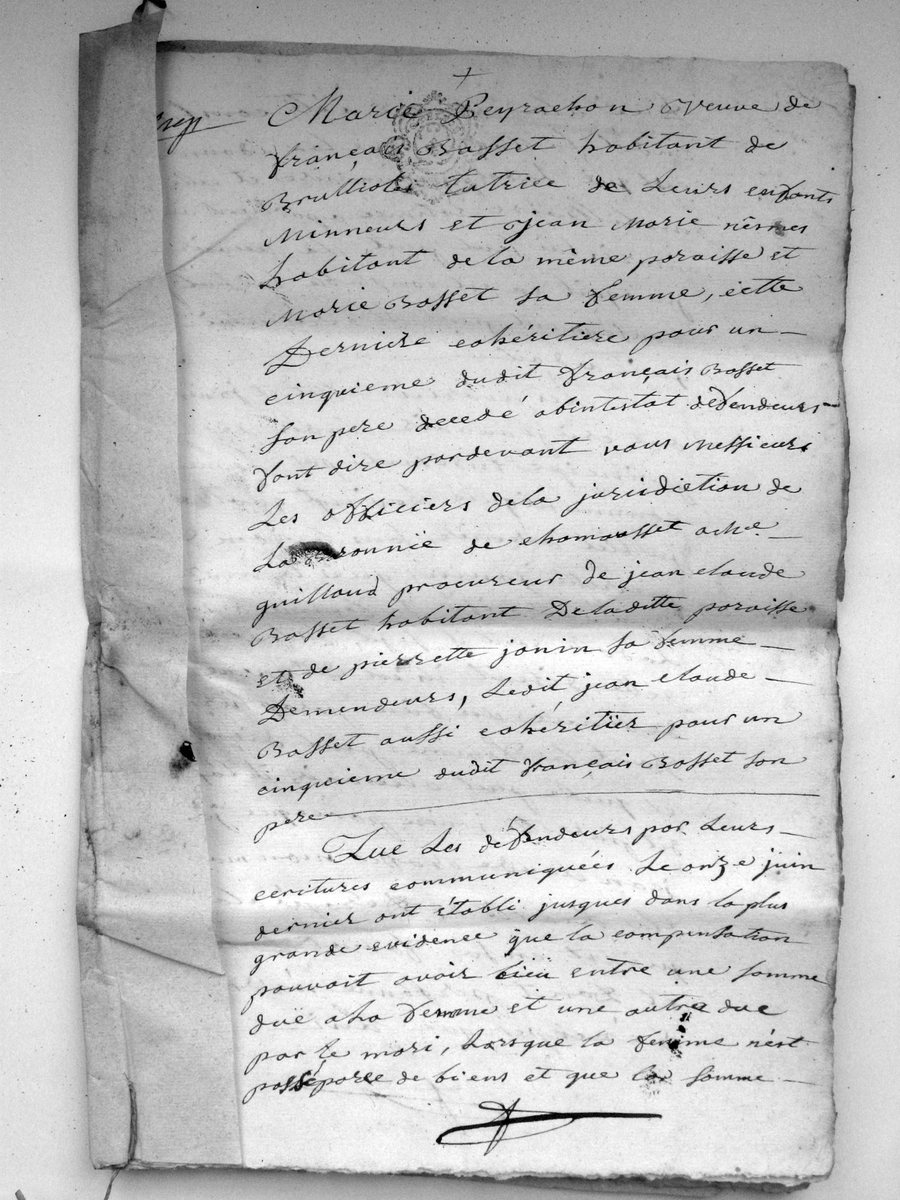 Marie Peyrachon veuve de
françois Basset habitant de
Brullioles tutrice de Leurs enfants
Minneurs et jean Marie nesmes
habitant de la même paroisse et
Marie Basset sa femme, cette
Derniere cohéritiere pour un
cinquieme dudit françois Basset
son pere decedé abintestat défendeurs
font dire pardevant vous Messieurs
Les officiers dela jurisdiction de
La Baronnie de chamousset a Me
guillaud procureur de jean claude
Basset habitant Deladitte paroisse
et de pierrette janin sa femme
Demendeurs, Ledit jean claude
Basset aussi cohéritier pour un
cinquieme dudit françois Basset son
pere
Que Les défendeurs par Leurs
ecritures communiquées Le onze juin
dernier ont établi jusques dans la plus
grande evidence que la compensation
pouvoit avoir lieu entre une somme
duë a La femme et une autre due
par le mari, Lorsque la femme n'est
pas séparée de biens et que la somme